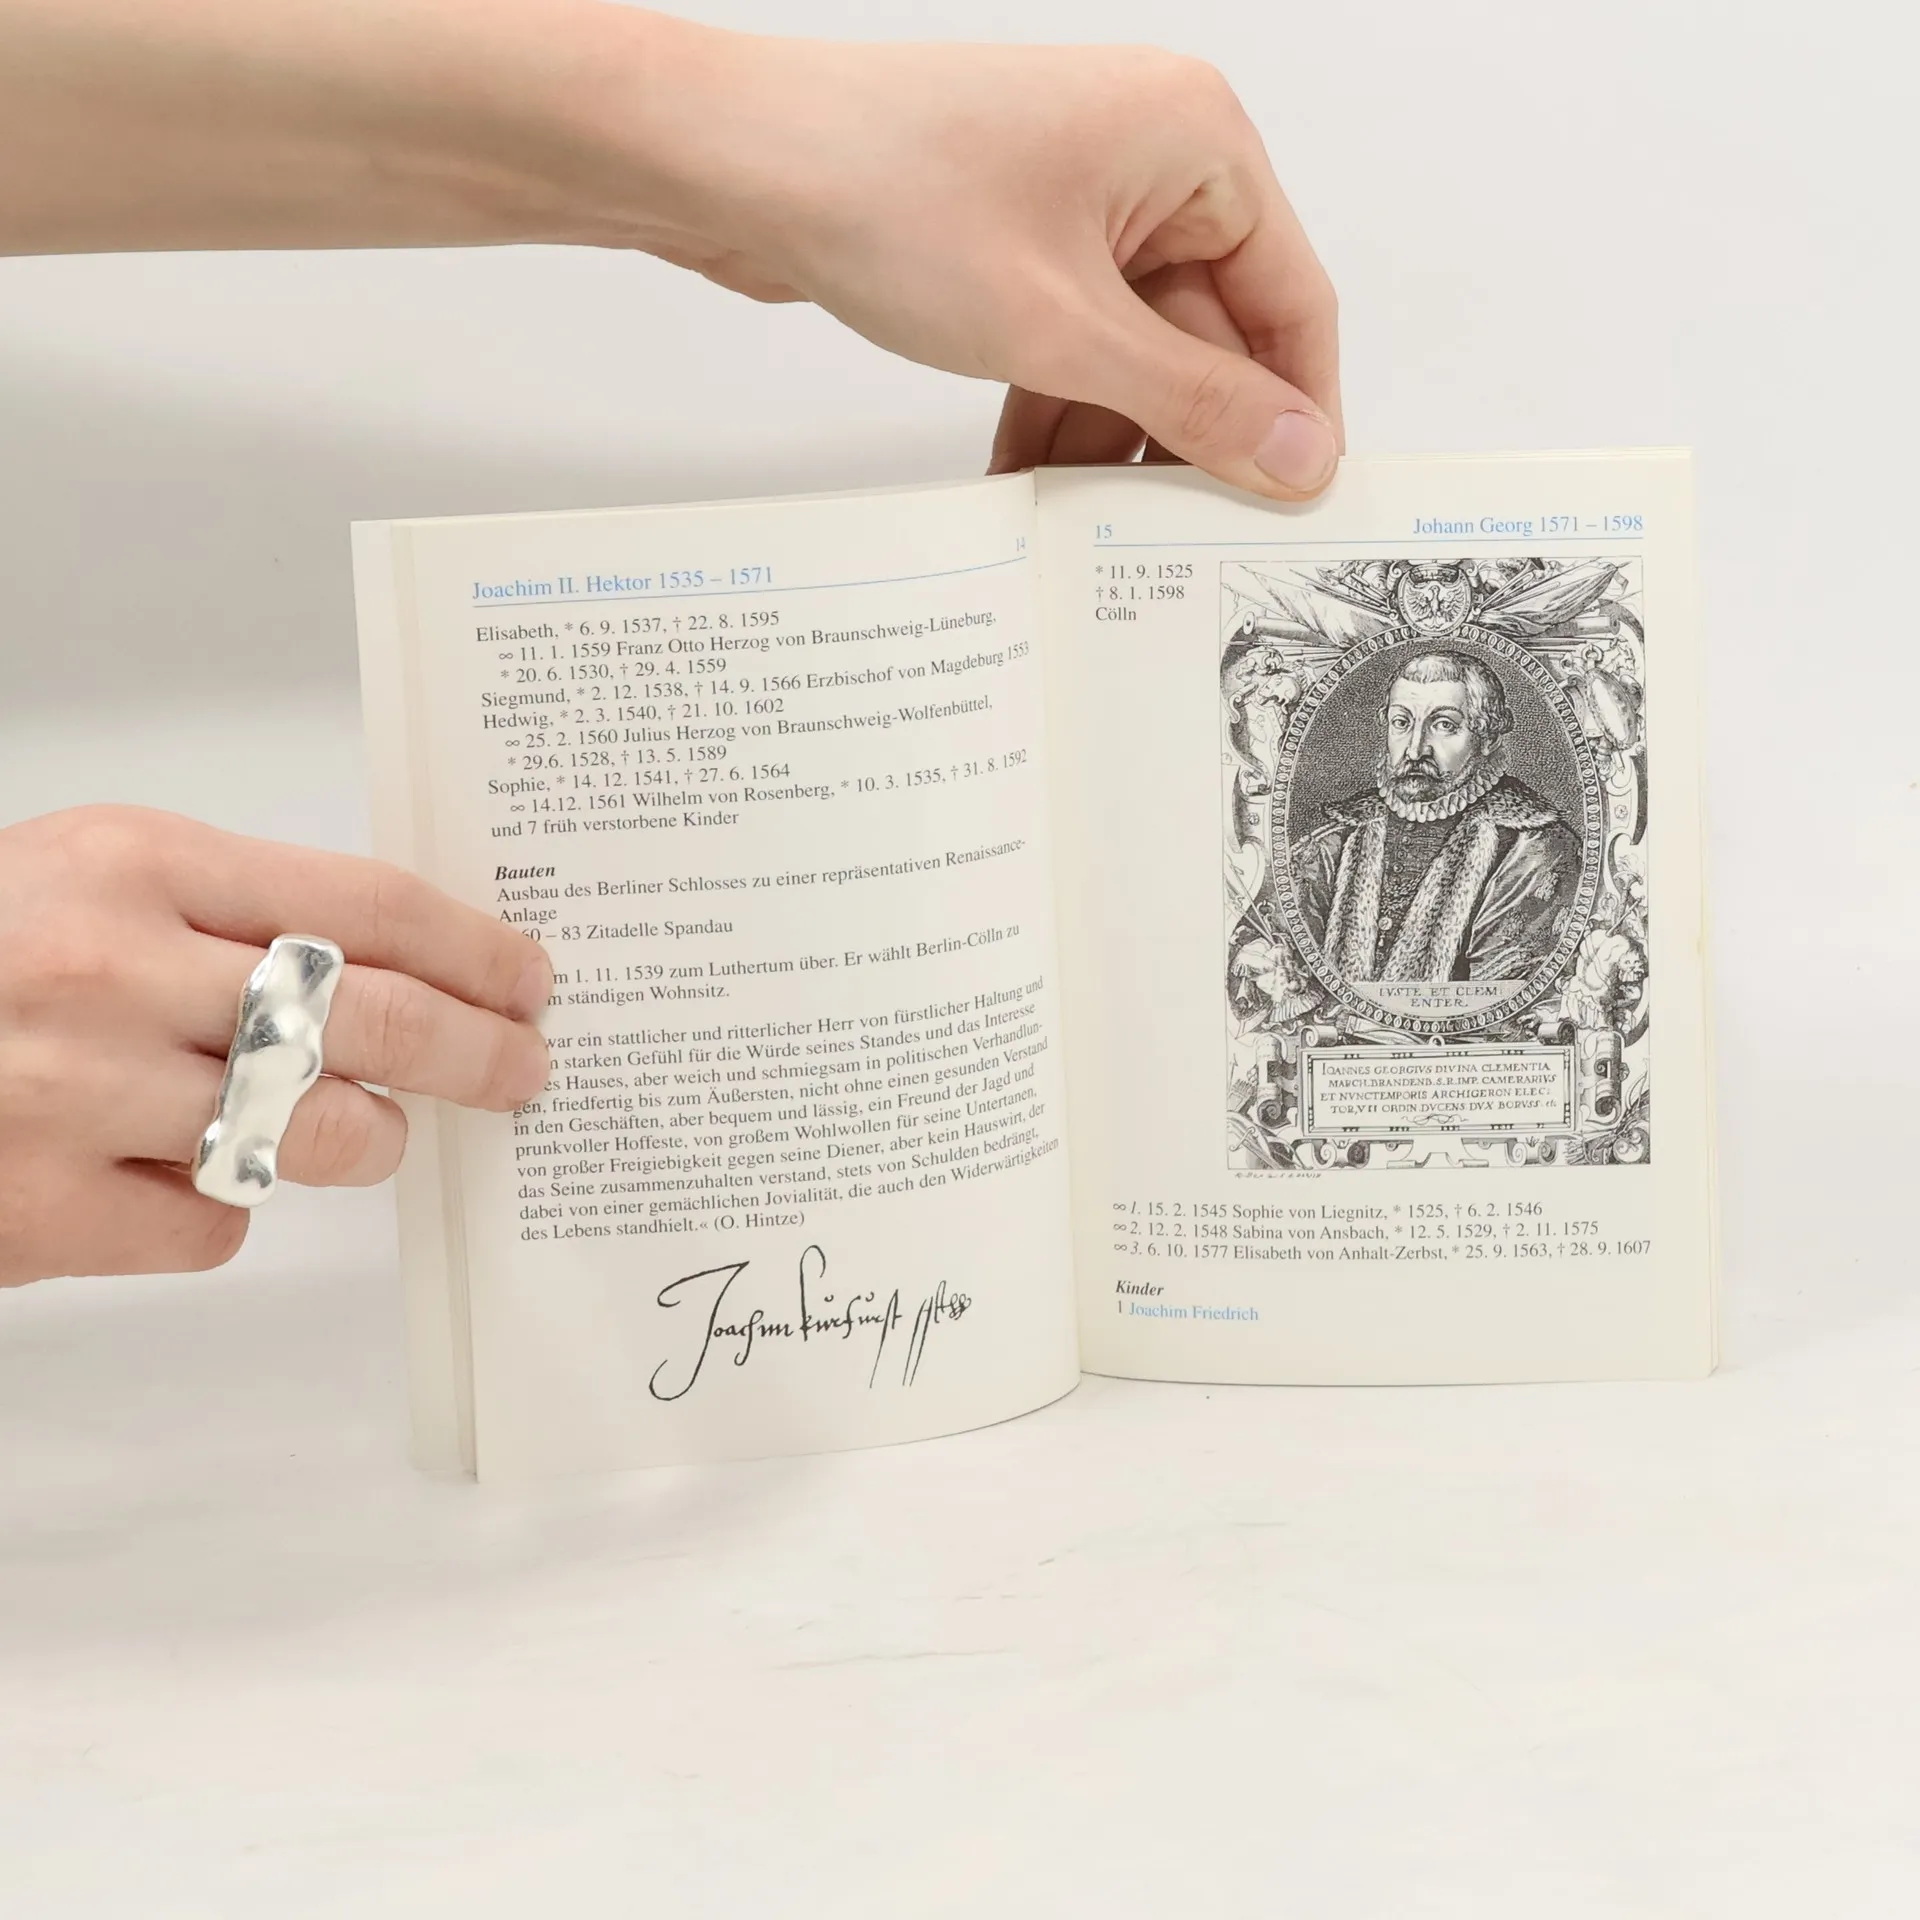 14
Joachim II. Hektor 1535 – 1571
Elisabeth, * 6. 9. 1537, † 22. 8. 1595
∞ 11. 1. 1559 Franz Otto Herzog von Braunschweig-Lüneburg,
* 20. 6. 1530, † 29. 4. 1559
Siegmund, * 2. 12. 1538, † 14. 9. 1566 Erzbischof von Magdeburg 1553
Hedwig, * 2. 3. 1540, † 21. 10. 1602
∞ 25. 2. 1560 Julius Herzog von Braunschweig-Wolfenbüttel,
* 29.6. 1528, † 13. 5. 1589
Sophie, * 14. 12. 1541, † 27. 6. 1564
∞ 14.12. 1561 Wilhelm von Rosenberg, * 10. 3. 1535, † 31. 8. 1592
und 7 früh verstorbene Kinder
Bauten
Ausbau des Berliner Schlosses zu einer repräsentativen Renaissance-
Anlage
60 – 83 Zitadelle Spandau
m 1. 11. 1539 zum Luthertum über. Er wählt Berlin-Cölln zu
m ständigen Wohnsitz.
war ein stattlicher und ritterlicher Herr von fürstlicher Haltung und
n starken Gefühl für die Würde seines Standes und das Interesse
es Hauses, aber weich und schmiegsam in politischen Verhandlun-
gen, friedfertig bis zum Äußersten, nicht ohne einen gesunden Verstand
in den Geschäften, aber bequem und lässig, ein Freund der Jagd und
prunkvoller Hoffeste, von großem Wohlwollen für seine Untertanen,
von großer Freigiebigkeit gegen seine Diener, aber kein Hauswirt, der
das Seine zusammenzuhalten verstand, stets von Schulden bedrängt,
dabei von einer gemächlichen Jovialität, die auch den Widerwärtigkeiten
des Lebens standhielt.« (O. Hintze)
Joachim kurfurst
15 Johann Georg 1571 – 1598
* 11. 9. 1525
† 8. 1. 1598
Cölln
IVSTE ET CLEM
ENTER.
IOANNES GEORGIVS DIVINA CLEMENTIA
MARCH.BRANDENB.S.R.IMP. CAMERARIVS
ET NVNCTEMPORIS ARCHIGERON ELEC:
TOR,VII ORDIN DVCENS DVX BORVSS. etc
∞ 1. 15. 2. 1545 Sophie von Liegnitz, * 1525, † 6. 2. 1546
∞ 2. 12. 2. 1548 Sabina von Ansbach, * 12. 5. 1529, † 2. 11. 1575
∞ 3. 6. 10. 1577 Elisabeth von Anhalt-Zerbst, * 25. 9. 1563, † 28. 9. 1607
Kinder
1 Joachim Friedrich